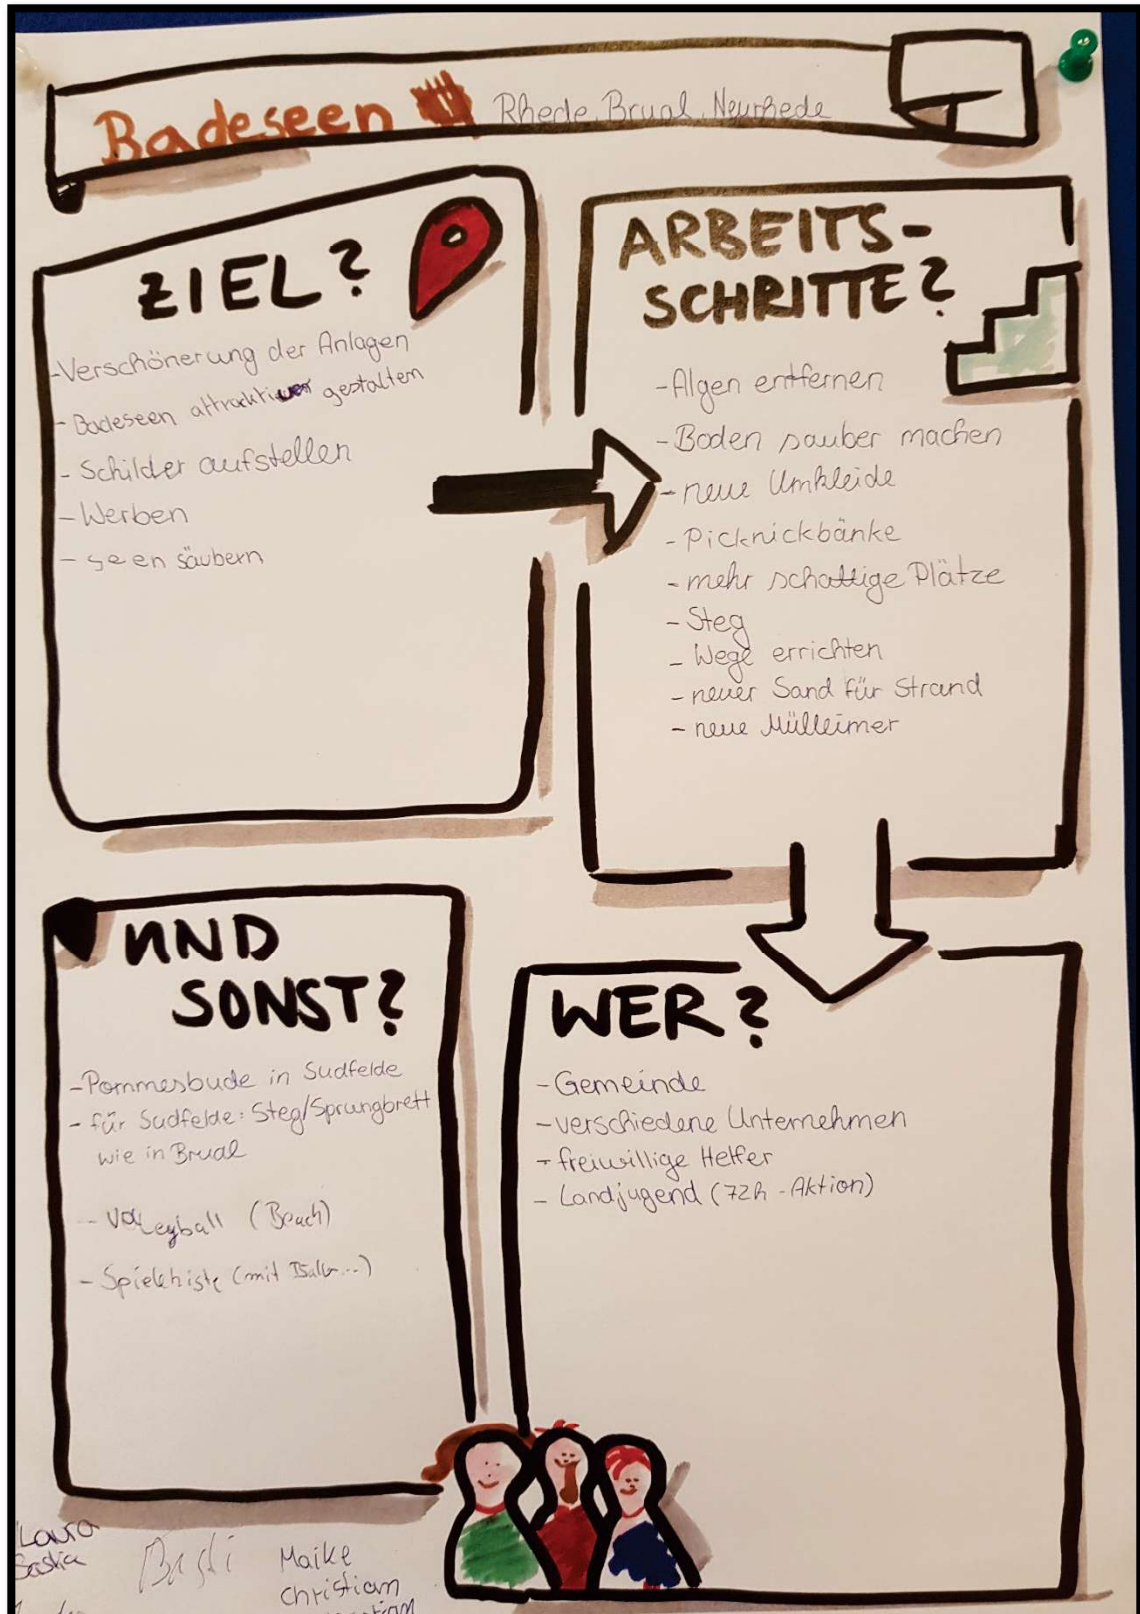 Badeseen Rhede, Brual, Neurhede
ZIEL?
-Verschönerung der Anlagen
- Badeseen attraktiver gestalten
- Schilder aufstellen
- Werben
- seen säubern
ARBEITS-
SCHRITTE?
-Algen entfernen
-Boden sauber machen
- neue Umkleide
- Picknickbänke
- mehr schattige Plätze
- Steg
- Wege errichten
- neuer Sand für Strand
- neue Mülleimer
UND
SONST?
-Pommesbude in Sudfelde
- für Sudfelde: Steg/Sprungbrett
wie in Brual
- Volleyball (Beach)
- Spielkiste (mit
WER?
- Gemeinde
- verschiedene Unternehmen
- freiwillige Helfer
- Landjugend (72h - Aktion)
Laura
Saskia
Basti
Maike
Christian